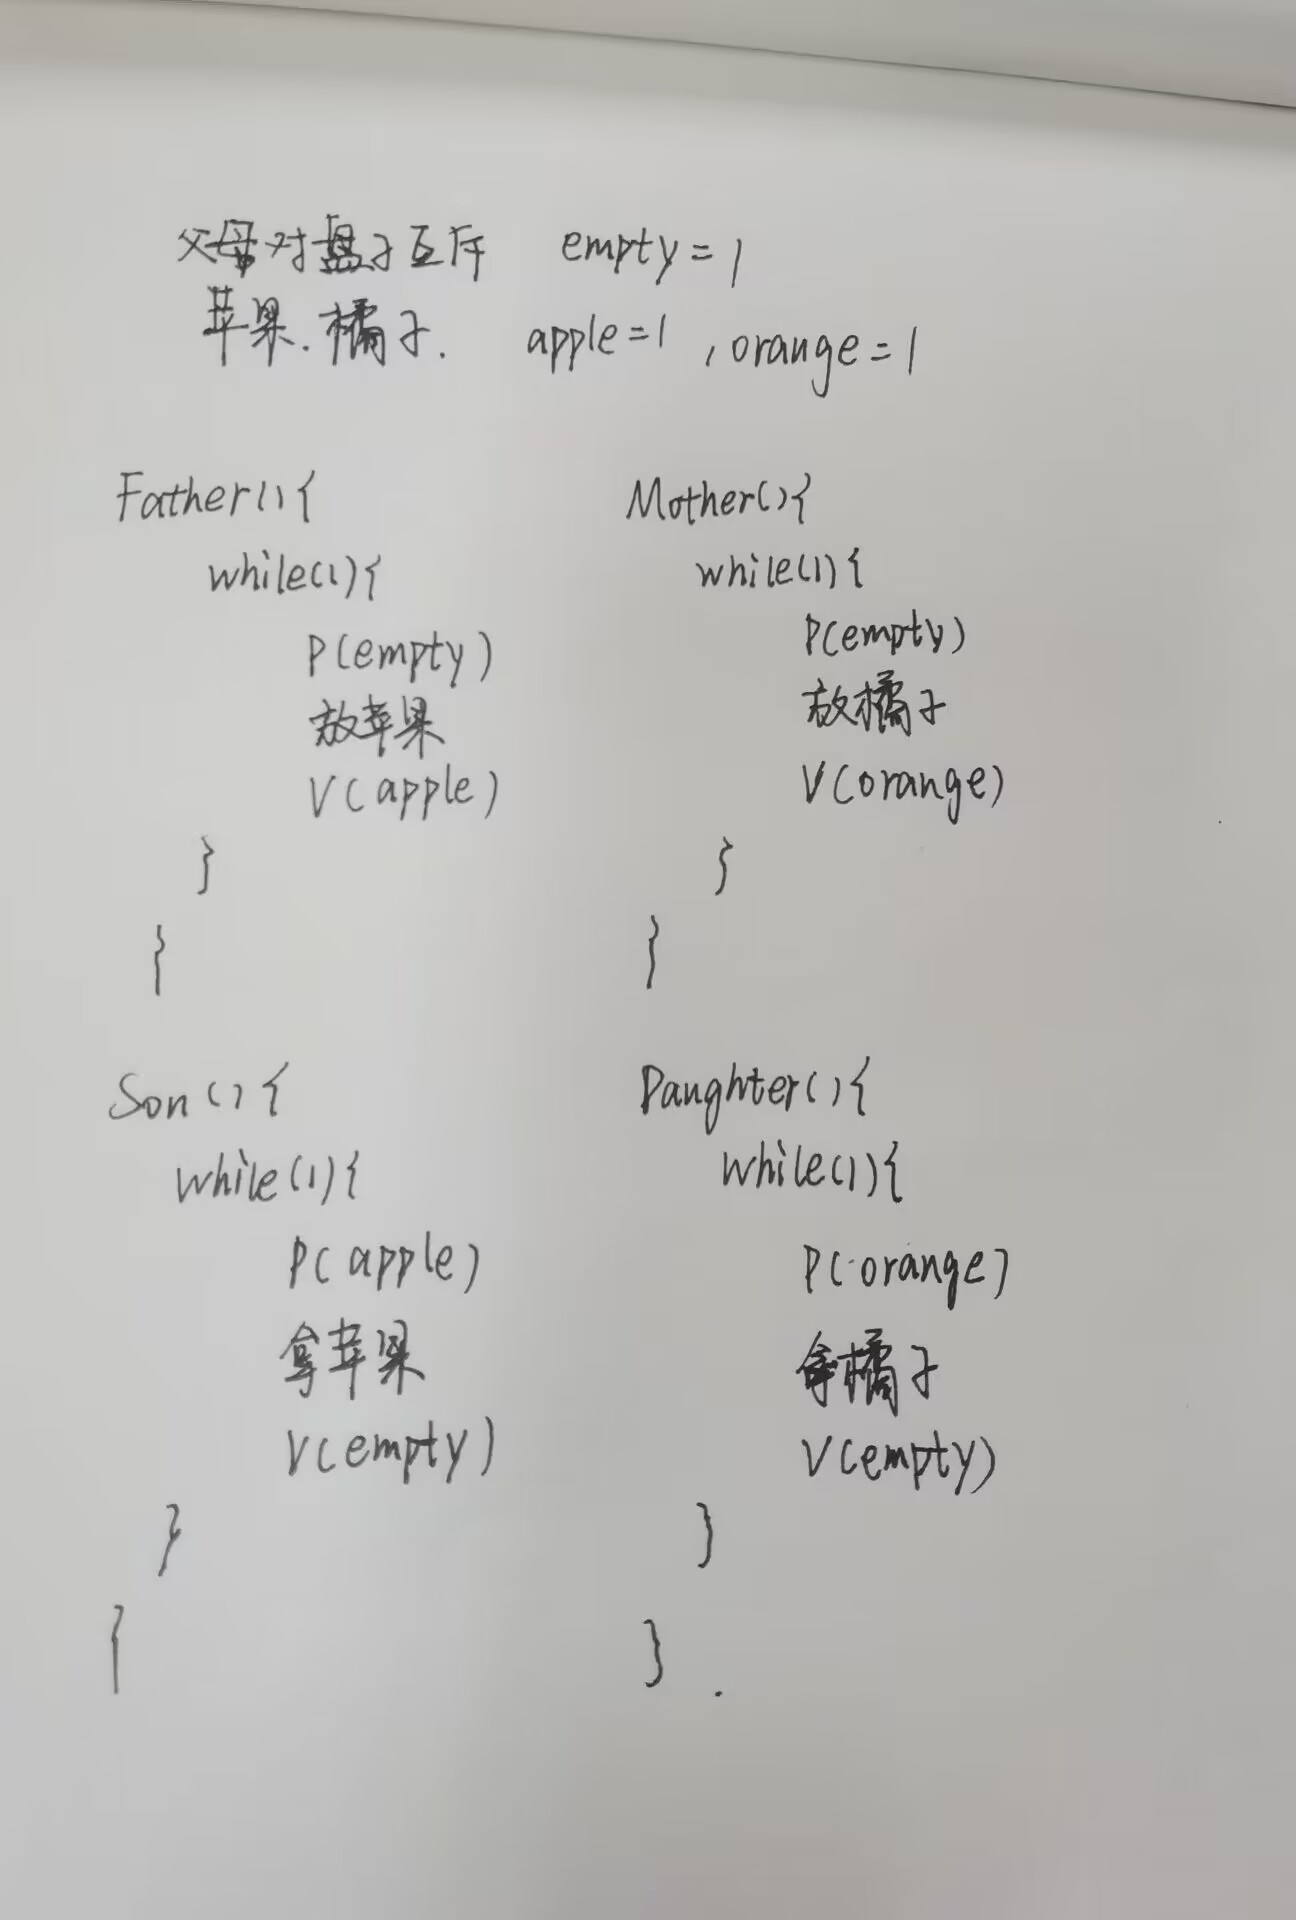 父母对盘子互斥 empty = 1
苹果. 橘子. apple = 1 , orange = 1
Father(){
while(1){
P(empty)
放苹果
V(apple)
}
}
Mother(){
while(1){
P(empty)
放橘子
V(orange)
}
}
Son(){
while(1){
P(apple)
拿苹果
V(empty)
}
}
Daughter(){
while(1){
P(orange)
拿橘子
V(empty)
}
}.